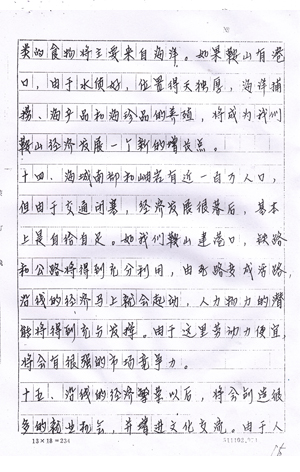 类的食物将主要来自海洋。如果鞍山有港
口，由于水质好，位置得天独厚，海洋捕
捞、海产品和海珍品的养殖，将成为我们
鞍山经济发展一个新的增长点。
十四、海城南部和岫岩有近一百万人口，
但由于交通闭塞，经济发展很落后，基本
上是自给自足。如我们鞍山建港口，铁路
和公路将得到充分利用，由死路变成活路，
沿线的经济马上就会起动，人力物力的潜
能将得到充分发挥。由于这里劳动力便宜，
将会有很强的市场竞争力。
十五、沿线的经济繁荣以后，将会创造很
多的就业机会，并增进文化交流。由于人
13×18=234